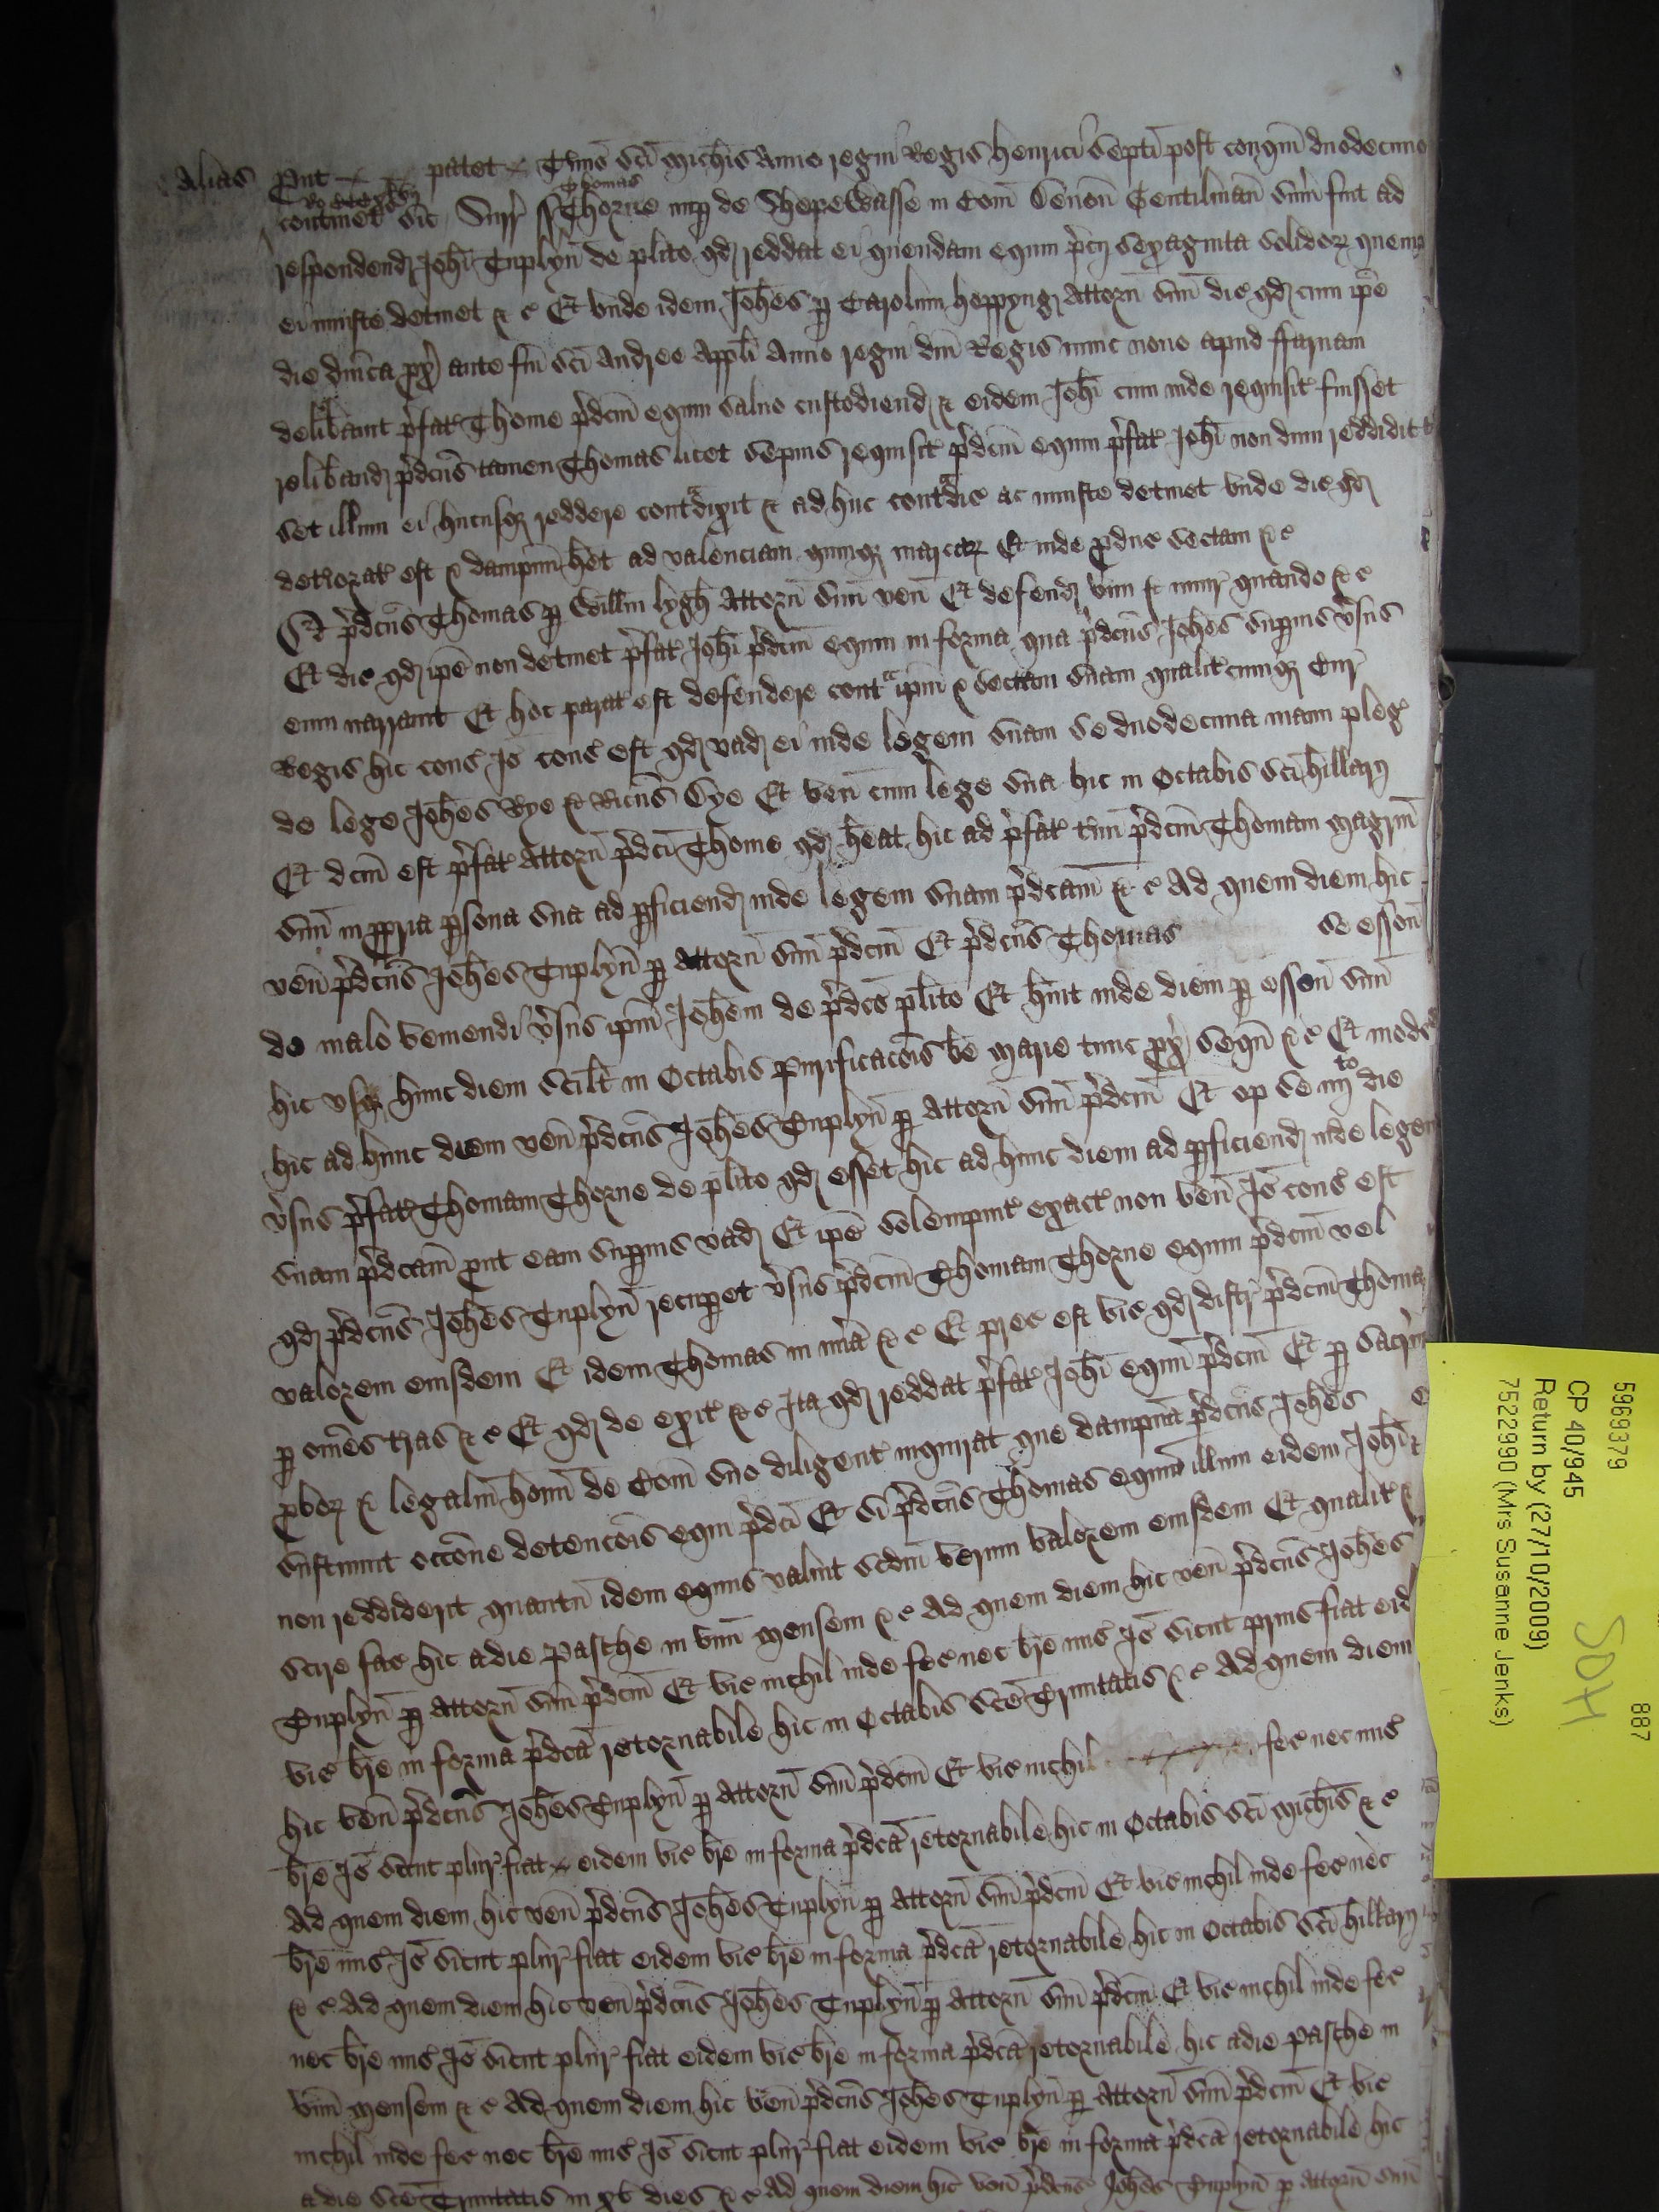 Alias put patet Tmis sci Michis Anno regni Regis Henrici septi post conqm duodecimo
continet sic Surr ss Thomas Thorne nup de Shepewasse in Com Devon Gentilman sum fuit ad
respondend Johi Tuplyn de plito qd reddat ei quendam equm pcij sexaginta solidor quem
ei iniuste detinet &c Et unde idem Johes p Carolum Hoppyng Attorn sum dic qd cum ipe
die dnica px ante fm sci Andree Appli Anno regni dni Regis nunc nono apud ffarnam
delibavit pfat Thome pdcm equm salvo custodiend & eidem Johi cum inde requisit fuisset
reliband pdcus tamen Thomas licet sepius requisit pdcm equm pfat Johi non dum reddidit
set illum ei hucusq reddere contradixit & ad huc contradic ac iniuste detinet unde dic qd
deteriorat est & dampnm het ad valenciam quinq marcar Et inde pduc sectam &c
Et pdcus Thomas p Willm lygh Attorn sum ven Et defend vim & iniur quando &c
Et dic qd ipe non detinet pfat Johi pdcm equm in forma qua pdcus Johes supius vsus
eum narravit Et hoc parat est defendere contra ipm & sectam suam qualitcumq Cur
Regis hic cons Io cons est qd vad ei inde legem suam se duodecima manu pleg
de lege Johes Rye & Ricus Oye Et ven cum lege sua hic in Octabis sci Hillarij
Et dcm est pfat Attorn pdci Thome qd heat hic ad pfat tmin pdcm Thomam magrm
sum in ppria psona sua ad pficiend inde legem suam pdcam &c Ad quem diem hic
ven pdcus Johes Tuplyn p Attorn sum pdcm Et pdcus Thomas se esson
de malo veniendi vsus ipm Johem de pdco plito Et huit inde diem p esson sum
hic usq hunc diem scilt in Octabis Purificacois be Marie tunc px sequ &c Et modo
hic ad hunc diem ven pdcus Johes Tuplyn p Attorn sum pdcm Et op se iiijto die
vsus pfat Thomam Thorne de plito qd esset hic ad hunc diem ad pficiend inde legem
suam pdcam put eam supius vad Et ipe solempnit exact non ven Io cons est
qd pdcus Johes Tuplyn recupet vsus pdcm Thomam Thorne equm pdcm vel
valorem eiusdem Et idem Thomas in mia &c Et prec est vic qd distr pdcm Thomam
p omes tras &c Et qd de exit &c Ita qd reddat pfat Johi equm pdcm Et p sacrm
pbor & legaliu hoim de Com suo diligent inquirat que dampna pdcus Johes
sustinuit occone detencois equi pdci Et si pdcus Thomas equm illum eidem Johi
non reddiderit quantu idem equus valuit scdm verum valorem eiusdem Et qualit &c
scire fac hic a die Pasche in unu mensem &c Ad quem diem hic ven pdcus Johes
Tuplyn p Attorn sum pdcm Et vic nichil inde fec nec bre mis Io sicut prius fiat eid
vic bre in forma pdca retornabile hic in Octabis sce Trinitatis &c Ad quem diem
hic ven pdcus Johes Tuplyn p Attorn sum pdcm Et vic nichil fec nec mis
bre Io sicut plur fiat eidem vic bre in forma pdca retornabile hic in Octabis sci Michis &c
Ad quem diem hic ven pdcus Johes Tuplyn p Attorn sum pdcm Et vic nichil inde fec nec
bre mis Io sicut plur fiat eidem vic bre in forma pdca retornabile hic in Octabis sci Hillarij
&c Ad quem diem hic ven pdcus Johes Tuplyn p Attorn sum pdcm Et vic nichil inde fec
nec bre mis Io sicut plur fiat eidem vic bre in forma pdca retornabile hic a die Pasche in
unu mensem &c Ad quem diem hic ven pdcus Johes Tuplyn p Attorn sum pdcm Et vic
nichil inde fec nec bre mis Io sicut plur fiat eidem vic bre in forma pdca retornabile hic
a die sce Trinitatis in xv dies &c Ad quem diem hic ven pdcus Johes Tuplyn p Attorn sum
5969379 887
CP 40/945
Return by (27/10/2009)
7522990 (Mrs Susanne Jenks)
SDH